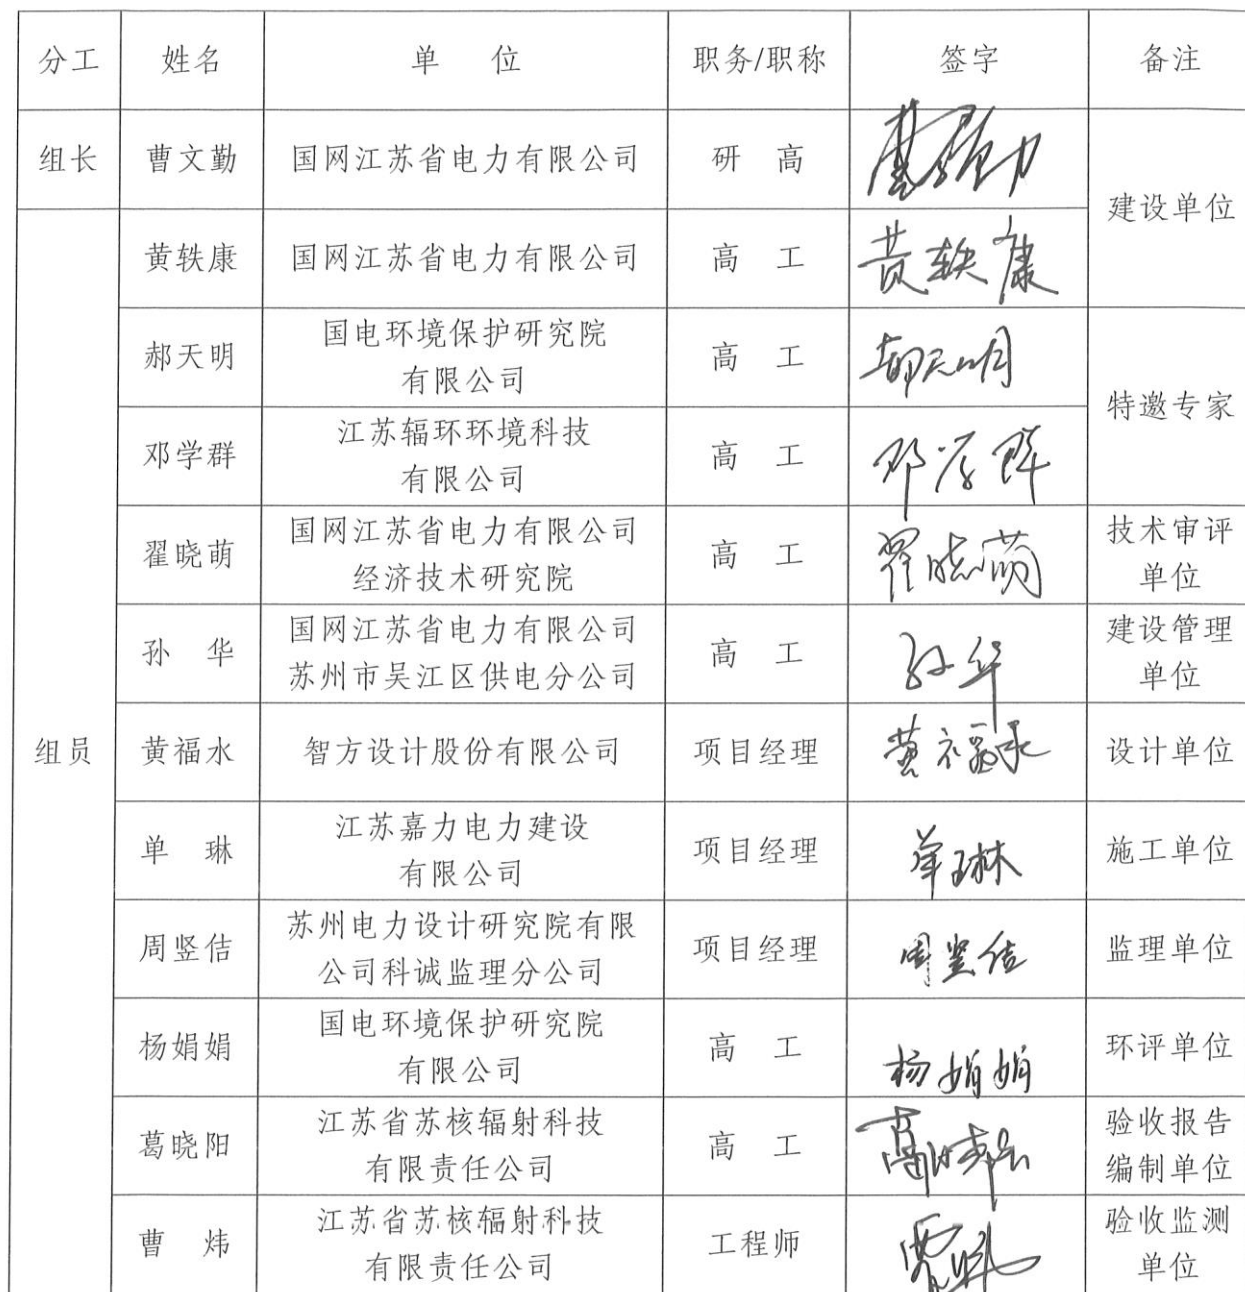 分工 姓名 单 位 职务/职称 签字 备注
组长 曹文勤 国网江苏省电力有限公司 研 高
建设单位
黄轶康 国网江苏省电力有限公司 高 工 黄轶康
郝天明 国电环境保护研究院
有限公司 高 工 郝天明
特邀专家
邓学群 江苏辐环环境科技
有限公司 高 工 邓学群
翟晓萌 国网江苏省电力有限公司
经济技术研究院 高 工 翟晓萌 技术审评
单位
孙 华 国网江苏省电力有限公司
苏州市吴江区供电分公司 高 工 孙华 建设管理
单位
组员 黄福水 智方设计股份有限公司 项目经理 黄福水 设计单位
单 琳 江苏嘉力电力建设
有限公司 项目经理 单琳 施工单位
周竖佶 苏州电力设计研究院有限
公司科诚监理分公司 项目经理 周竖佶 监理单位
杨娟娟 国电环境保护研究院
有限公司 高 工 杨娟娟 环评单位
葛晓阳 江苏省苏核辐射科技
有限责任公司 高 工 验收报告
编制单位
曹 炜 江苏省苏核辐射科技
有限责任公司 工程师 验收监测
单位